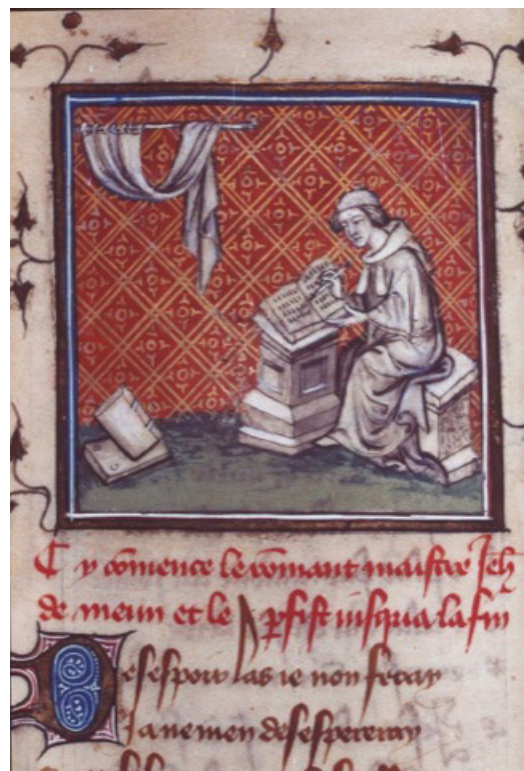 Cy cōmence le rōmant maistre Jeh̄
de meun et le ꝑfist iusqua la fin
Desespoir las ie non feray
Ja ne men desespereray